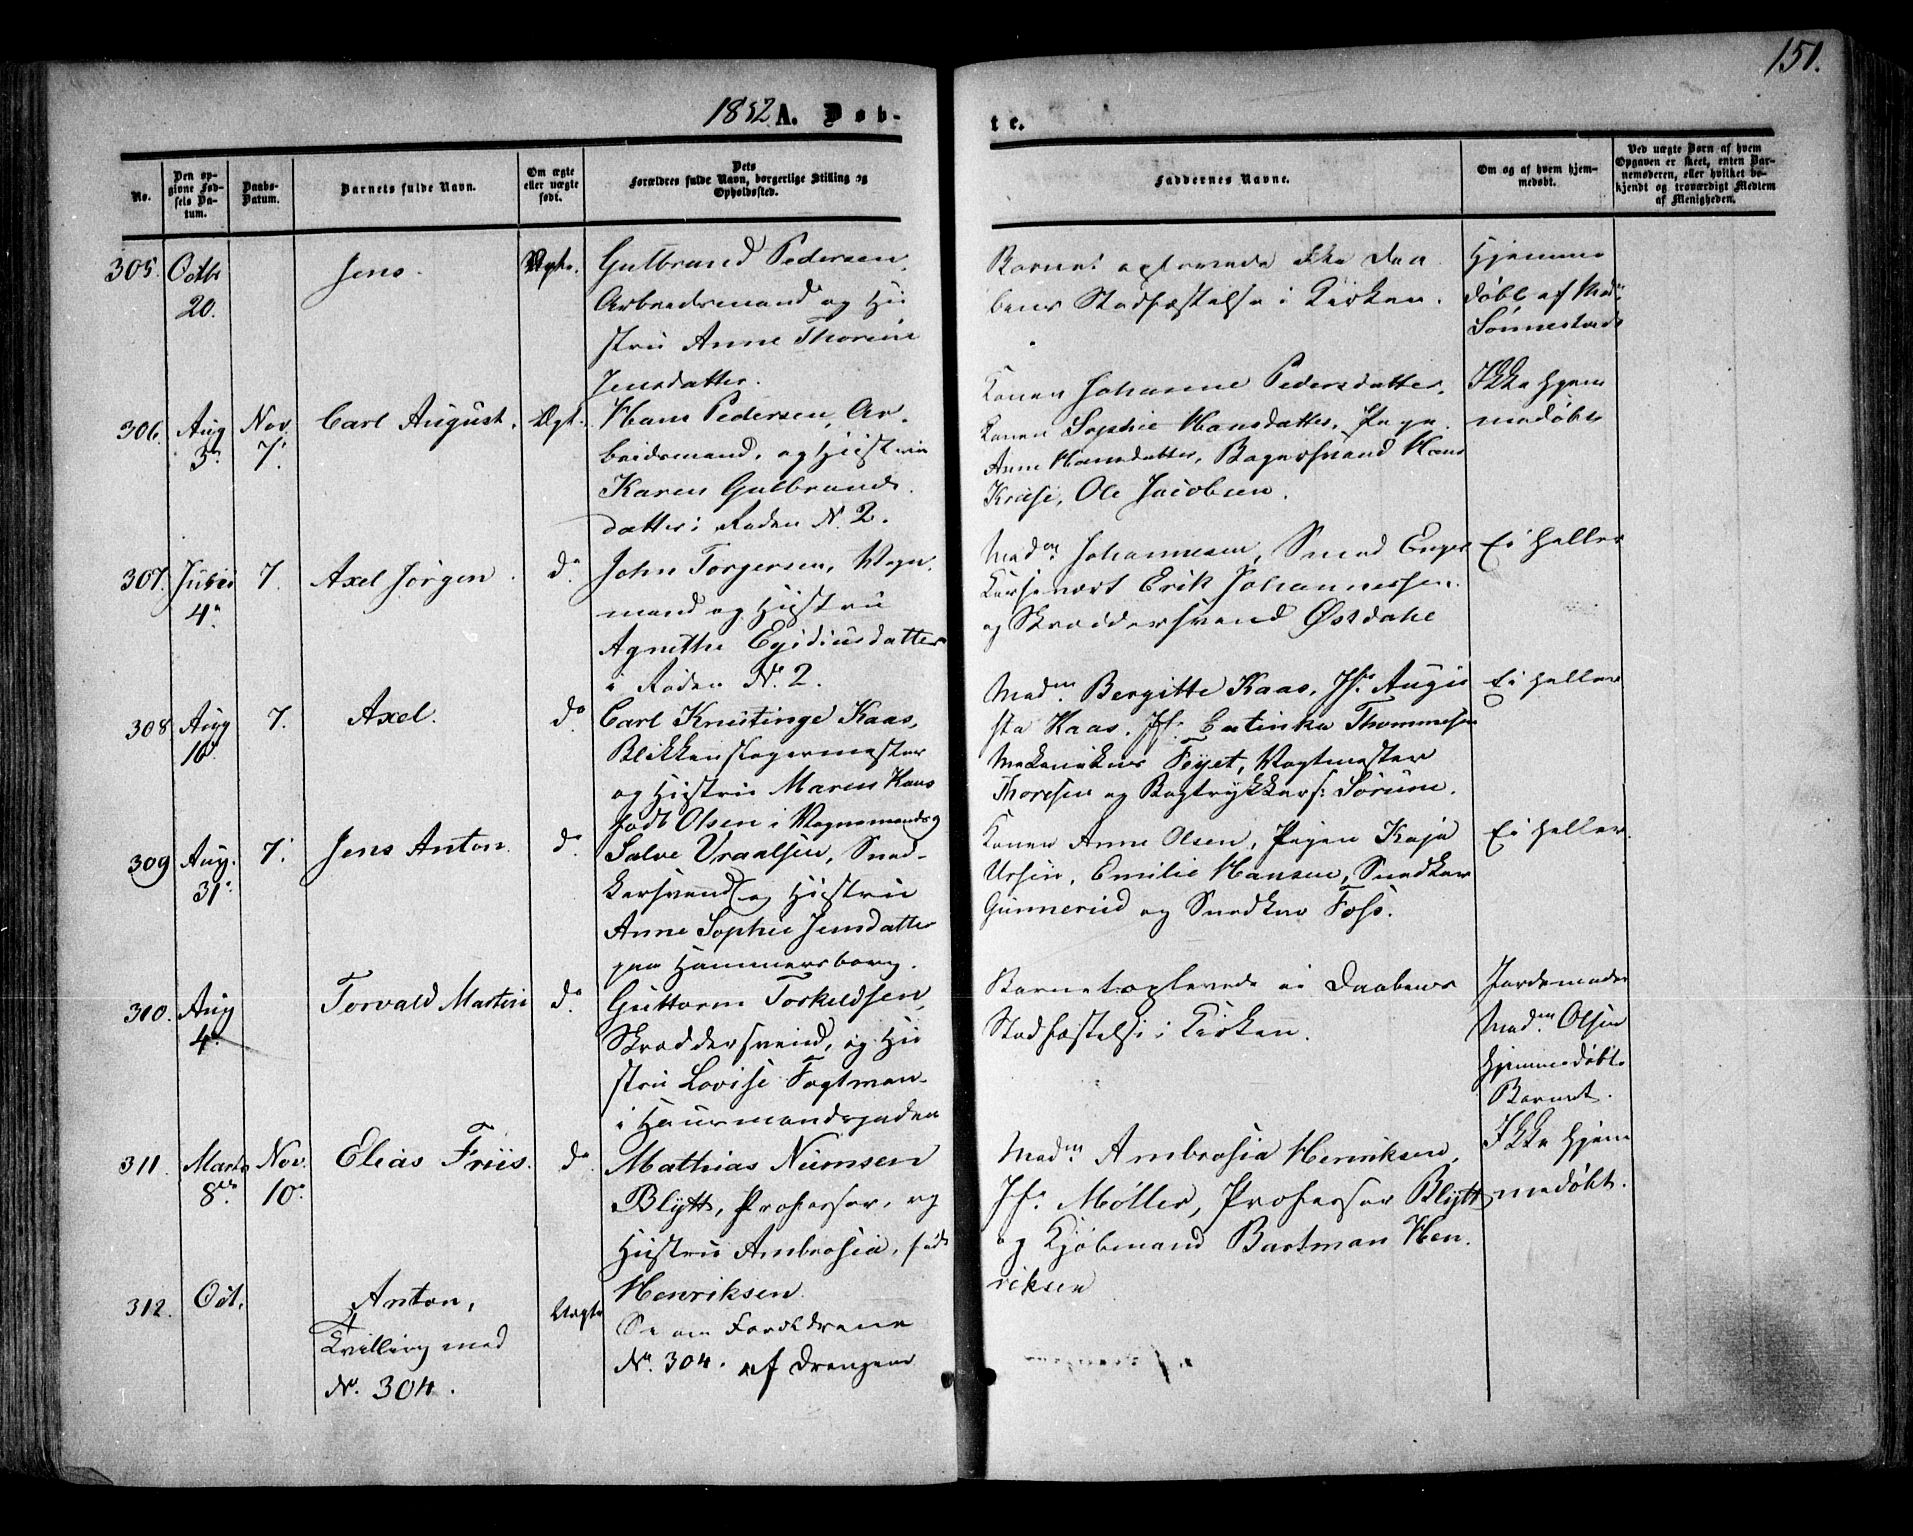 151.
1852 A. Døb-
te.
No.
Den op-
givne Fød-
sels Da-
tum.
Daabs-
Datum.
Barnets fulde Navn.
Om ægte
eller uægte
født.
Dets
Forældres fulde Navn, borgerlige Stilling og
Opholdssted.
Faddernes Navne.
Om og af hvem hjem-
medøbt.
Ved uægte Børn af hvem
Opgaven er skeet, enten Bar-
nemoderen, eller hvilket be-
kjendt og troværdigt Medlem
af Menigheden.
305. Octbr
20.
Jens.
Ægte.
Gulbrand Pedersen,
Arbeidsmand og Hu
stru Anne Thorine
Jensdatter.
Barnet oplevede ikke Daa
bens Stadfæstelse i Kirken.
Hjemme
døbt af Mad:
Sønnesteds
306. Aug
3.
Nov.
7.
Carl August.
Ægt.
Hans Pedersen, Ar-
beidsmand, og Hustrue
Karen Gulbrands.
datter i Roden N. 2.
Konen Johanne Pedersdatter,
Konen Sophie Hansdatter, Pige
Anne Hansdatter, Bagersvend Hans
Kruse, Ole Jacobsen.
Ikke hjem
medøbt
307. Julii
4.
7.
Axel Jörgen.
do.
John Torgersen, Vogn.
mand og Hustru
Agnethe Egidiusdatter
i Roden N. 2.
Madm. Johannesen, Smed Enger
Erik Johannessen.
og Skræddersvend Østdahl
Ei heller
308. Aug
10.
7.
Axel.
do
Carl Knutinge Kaas,
Blikkenslagermester
og Hustru Maren Kaas
født Olsen i Vognmandsg
Madm. Bergitte Kaas, Jfr. Augu
sta Kaas, Jf. Catinka Thommesen
Mekanikus Føyet, Vagtmester
Thoresen og Bogtrykkers: Sörum.
Ei heller
309. Aug.
31.
7.
Jens Anton.
do.
Salve Vraalsen, Sned-
kersvend og Hustru
Anne Sophie Jensdatter
paa Hammersborg.
Konen Anne Olsen, Pigen Kaja
Ursin, Emilie Hansen, Snedker
Gunnerud og Snedker Foss.
Ei heller.
310. Aug
4.
Torvald Martin
do
Guttorm Torkildsen,
Skræddersvend, og Hu
stru Lovise Fogtman
i Huusmandsgaden
Barnet oplevede ei Daabens
Stadfæstelse i Kirken.
Jordemoder
Madm. Olsen
hjemmedøbte
Barnet.
311. Marts
8de.
Nov.
10.
Elias Friis.
do.
Mathias Numsen
Blytt, Professor, og
Hustru Ambrosia, født
Henriksen.
Madm. Ambrosia Henriksen,
Jfr. Møller, Professor Blytt
og Kjøbmand Bastman Hen.
riksen
Ikke hjem
medøbt.
312. Oct.
Anton,
Tvilling med
N. 304.
Uægte
Se om Forældrene
N. 304. af Drengene